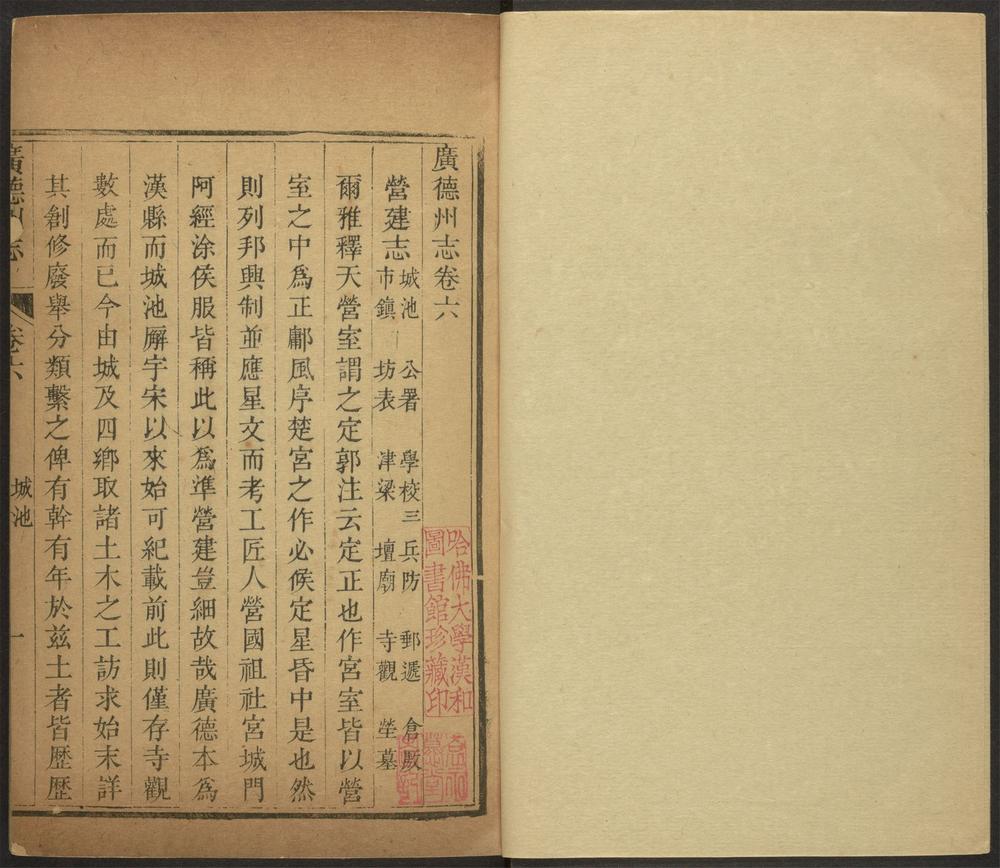 廣德州志卷六
營建志 城池 公署 學校三 兵防 郵遞 倉厫
市鎮 坊表 津梁 壇廟 寺觀 塋墓
爾雅釋天營室謂之定郭注云定正也作宮室皆以營
室之中爲正鄘風序楚宮之作必候定星昏中是也然
則列邦興制並應星文而考工匠人營國祖社宮城門
阿經涂侯服皆稱此以爲準營建豈細故哉廣德本爲
漢縣而城池廨宇宋以來始可紀載前此則僅存寺觀
數處而已今由城及四鄉取諸土木之工訪求始末詳
其創修廢舉分類繫之俾有幹有年於兹土者皆歷歷
廣德州志 卷六 城池 一
哈佛大學漢和
圖書館珍藏印